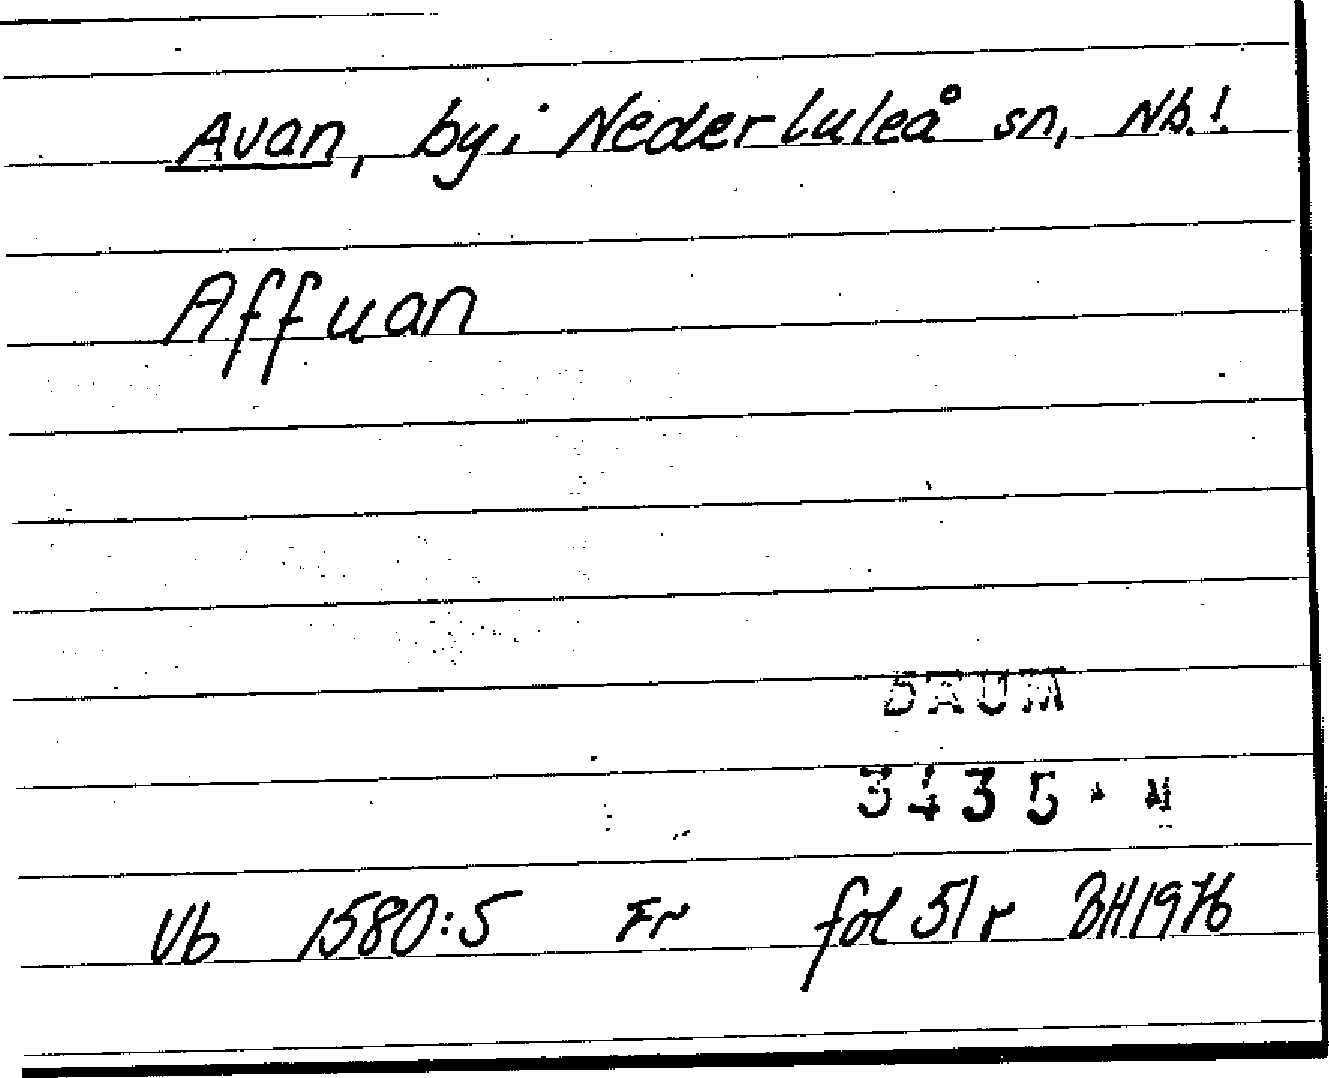 Avan, by i Nederluleå sn, Nb.!
Affuan
DAUM
3435
Vb 1580:5 Fr fol 51 r BH 1976